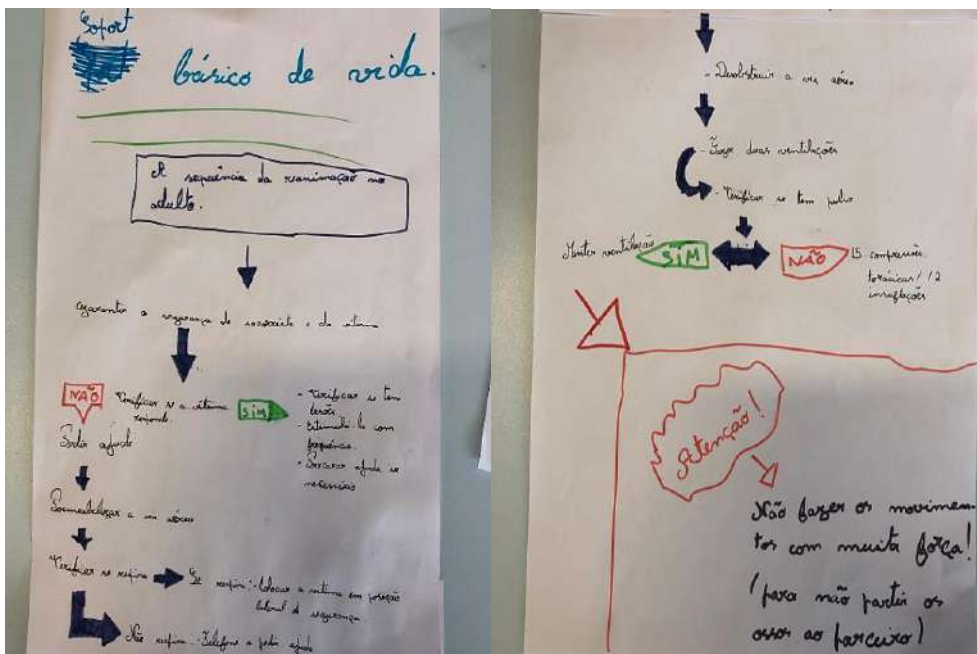 Soport
básico de vida.
A sequência da reanimação no
adulto.
Garantir a segurança do socorrista e da vítima
NÃO
Verificar se a vítima
responde
SIM
- Verificar se tem
lesões
- Estimulá-lo com
frequência.
- Procurar ajuda se
necessário
Pedir ajuda
Permeabilizar a via aérea
Verificar se respira
Se respira: - Colocar a vítima em posição
lateral de segurança.
Não respira: - Telefone a pedir ajuda
- Desobstruir a via aérea
- Fazer duas ventilações
- Verificar se tem pulso
Manter ventilação
SIM
NÃO
15 compressões
torácicas / 2
insuflações
Atenção!
Não fazer os movimen-
tos com muita força!
(para não partir os
ossos ao parceiro)